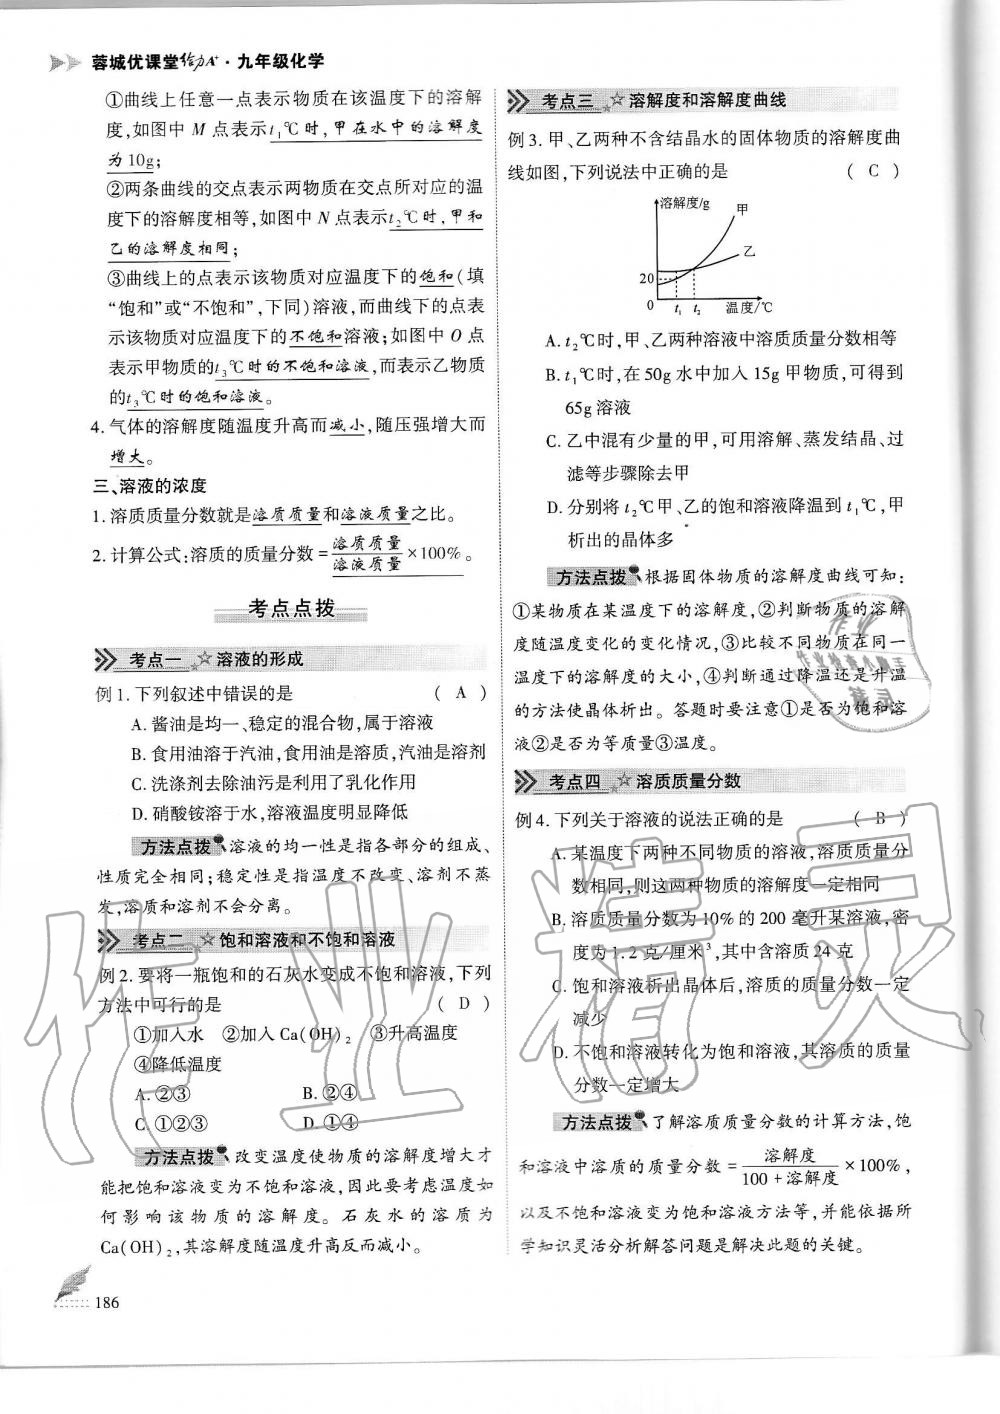 蓉城优课堂给力A+·九年级化学
①曲线上任意一点表示物质在该温度下的溶解
度,如图中 M 点表示t₁℃时,甲在水中的溶解度
为10g;
②两条曲线的交点表示两物质在交点所对应的温
度下的溶解度相等,如图中 N 点表示t₂℃时,甲和
乙的溶解度相同;
③曲线上的点表示该物质对应温度下的饱和(填
“饱和”或“不饱和”,下同)溶液,而曲线下的点表
示该物质对应温度下的不饱和溶液;如图中 O 点
表示甲物质的t₃℃时的不饱和溶液,而表示乙物质
的t₃℃时的饱和溶液。
4. 气体的溶解度随温度升高而减小,随压强增大而
增大。
三、溶液的浓度
1. 溶质质量分数就是溶质质量和溶液质量之比。
2. 计算公式:溶质的质量分数=溶质质量/溶液质量×100%。
考点点拨
考点一 ☆溶液的形成
例 1. 下列叙述中错误的是 ( A )
A. 酱油是均一、稳定的混合物,属于溶液
B. 食用油溶于汽油,食用油是溶质,汽油是溶剂
C. 洗涤剂去除油污是利用了乳化作用
D. 硝酸铵溶于水,溶液温度明显降低
方法点拨 溶液的均一性是指各部分的组成、
性质完全相同;稳定性是指温度不改变、溶剂不蒸
发,溶质和溶剂不会分离。
考点二 ☆饱和溶液和不饱和溶液
例 2. 要将一瓶饱和的石灰水变成不饱和溶液,下列
方法中可行的是 ( D )
①加入水 ②加入 Ca(OH)₂ ③升高温度
④降低温度
A. ②③ B. ②④
C. ①②③ D. ①④
方法点拨 改变温度使物质的溶解度增大才
能把饱和溶液变为不饱和溶液,因此要考虑温度如
何影响该物质的溶解度。石灰水的溶质为
Ca(OH)₂,其溶解度随温度升高反而减小。
186
考点三 ☆溶解度和溶解度曲线
例 3. 甲、乙两种不含结晶水的固体物质的溶解度曲
线如图,下列说法中正确的是 ( C )
溶解度/g
甲
乙
20
0 t₁ t₂ 温度/℃
A. t₂℃时,甲、乙两种溶液中溶质质量分数相等
B. t₁℃时,在 50g 水中加入 15g 甲物质,可得到
65g 溶液
C. 乙中混有少量的甲,可用溶解、蒸发结晶、过
滤等步骤除去甲
D. 分别将 t₂℃甲、乙的饱和溶液降温到 t₁℃,甲
析出的晶体多
方法点拨 根据固体物质的溶解度曲线可知:
①某物质在某温度下的溶解度,②判断物质的溶解
度随温度变化的变化情况,③比较不同物质在同一
温度下的溶解度的大小,④判断通过降温还是升温
的方法使晶体析出。答题时要注意①是否为饱和溶
液②是否为等质量③温度。
考点四 ☆溶质质量分数
例 4. 下列关于溶液的说法正确的是 ( B )
A. 某温度下两种不同物质的溶液,溶质质量分
数相同,则这两种物质的溶解度一定相同
B. 溶质质量分数为 10%的 200 毫升某溶液,密
度为 1.2 克/厘米³,其中含溶质 24 克
C. 饱和溶液析出晶体后,溶质的质量分数一定
减少
D. 不饱和溶液转化为饱和溶液,其溶质的质量
分数一定增大
方法点拨 了解溶质质量分数的计算方法,饱
和溶液中溶质的质量分数=溶解度/100+溶解度×100%,
以及不饱和溶液变为饱和溶液方法等,并能依据所
学知识灵活分析解答问题是解决此题的关键。
作业精灵